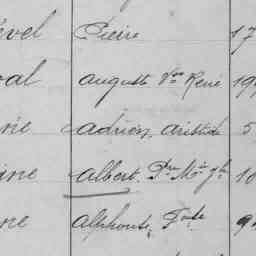 évelle Pierre 17
val auguste Vor René 19
ne adrien, aristide 5
ine albert. Pre Me Jh 10
ne alphonse, 9